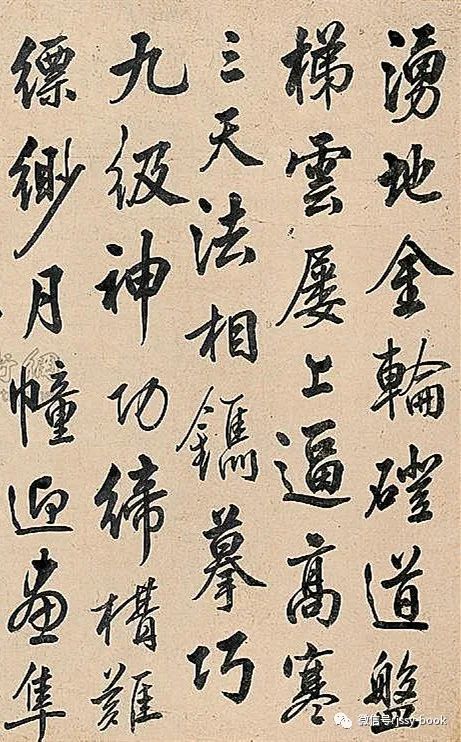 湧地金輪磴道盤
梯雲屢上逼高寒
三天法相鐫摹巧
九級神功締構難
縹緲月幢迎畫隼
微信号: jssy-book